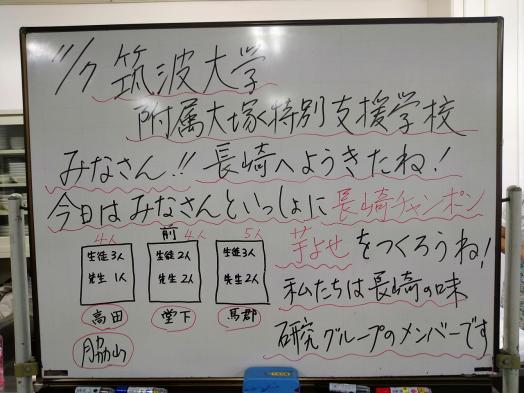 11/7 筑波大学
附属大塚特別支援学校
みなさん!! 長崎へようきたね!
今日はみなさんといっしょに長崎チャンポン
芋よせをつくろうね!
前
4人 4人 5人
生徒3人 生徒2人 生徒3人
先生1人 先生2人 先生2人
高田 堂下 馬郡
脇山
私たちは長崎の味
研究グループのメンバーです